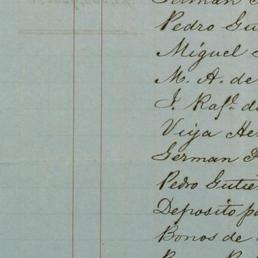 German
Pedro Gu
Miguel
M. A. de
J. Raf.l d
Viya He
German F
Pedro Gutie
Deposito pa
Bonos de